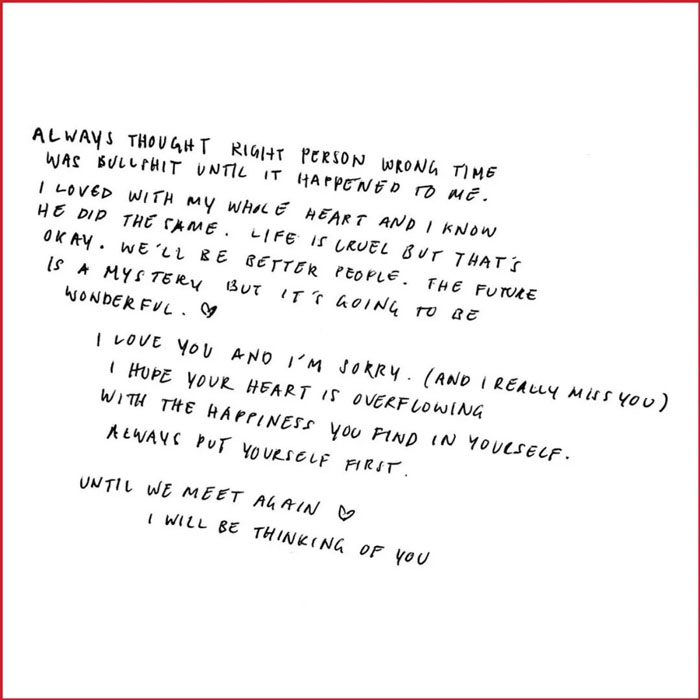 ALWAYS THOUGHT RIGHT PERSON WRONG TIME
WAS BULLSHIT UNTIL IT HAPPENED TO ME.
I LOVED WITH MY WHOLE HEART AND I KNOW
HE DID THE SAME. LIFE IS CRUEL BUT THAT'S
OKAY. WE'LL BE BETTER PEOPLE. THE FUTURE
IS A MYSTERY BUT IT'S GOING TO BE
WONDERFUL. ♡
I LOVE YOU AND I'M SORRY. (AND I REALLY MISS YOU)
I HOPE YOUR HEART IS OVERFLOWING
WITH THE HAPPINESS YOU FIND IN YOURSELF.
ALWAYS PUT YOURSELF FIRST.
UNTIL WE MEET AGAIN ♡
I WILL BE THINKING OF YOU